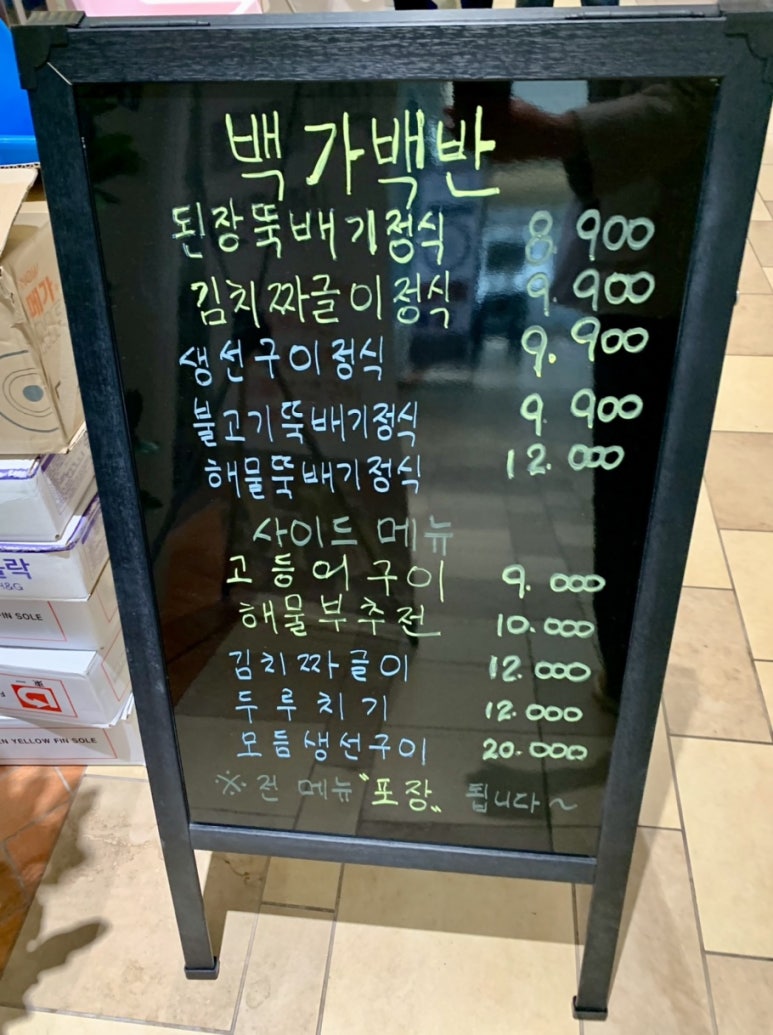 백가백반
된장뚝배기정식 8.900
김치짜글이정식 9.900
생선구이정식 9.900
불고기뚝배기정식 9.900
해물뚝배기정식 12.000
사이드 메뉴
고등어구이 9.000
해물부추전 10.000
김치짜글이 12.000
두루치기 12.000
모듬생선구이 20.000
※. 전 메뉴 "포장" 됩니다~
메가
락
H&G
FIN SOLE
EN YELLOW FIN SOLE